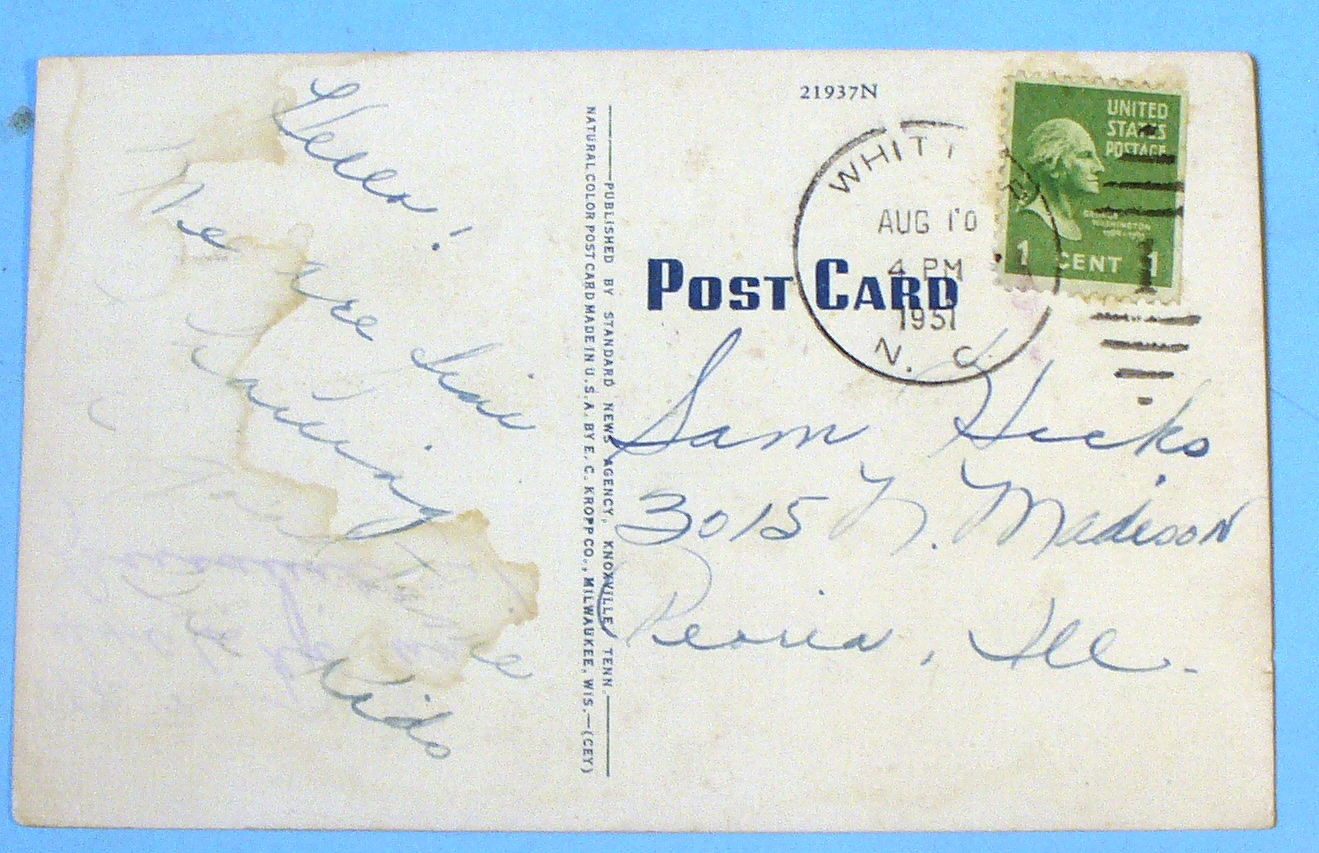 Hello!
We are here
Having
Time
The Kids
21937N
PUBLISHED BY STANDARD NEWS AGENCY, KNOXVILLE, TENN.
NATURAL COLOR POST CARD MADE IN U.S.A. BY E. C. KROPP CO., MILWAUKEE, WIS.—(CEY)
POST CARD
WHITTIER
AUG 10
4 PM
1951
N. C.
UNITED
STATES
POSTAGE
GEORGE
WASHINGTON
1 CENT 1
Sam Hicks
3015 N. Madison
Peoria, Ill.